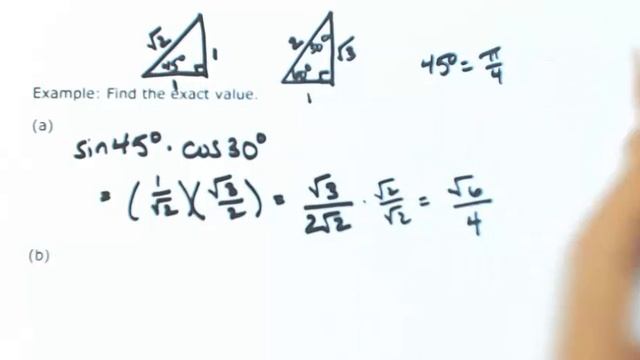 √2 45° 1 1
2 30° √3 60° 1
45° = π/4
Example: Find the exact value.
(a)
sin45° · cos30°
= (1/√2)(√3/2) = √3/2√2 · √2/√2 = √6/4
(b)